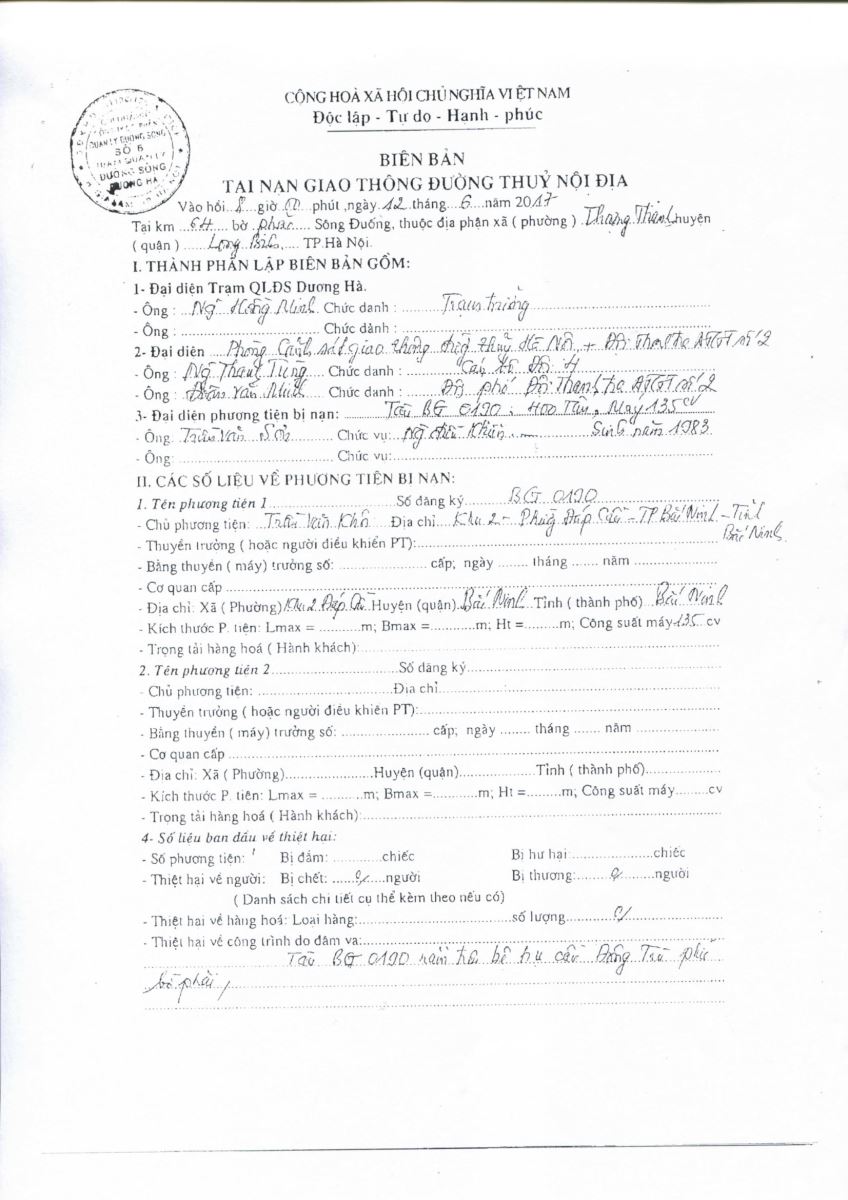 QUẢN LÝ ĐƯỜNG SÔNG
SỐ 6
TRẠM QUẢN LÝ
ĐƯỜNG SÔNG
DƯƠNG HÀ
CỘNG HOÀ XÃ HỘI CHỦ NGHĨA VIỆT NAM
Độc lập - Tự do - Hạnh - phúc
BIÊN BẢN
TAI NẠN GIAO THÔNG ĐƯỜNG THUỶ NỘI ĐỊA
Vào hồi 8 giờ 00 phút, ngày 12 tháng 6 năm 2017
Tại km 64 bờ phải Sông Đuống, thuộc địa phận xã (phường) Thượng Thanh huyện
(quận) Long Biên TP.Hà Nội.
I. THÀNH PHẦN LẬP BIÊN BẢN GỒM:
1- Đại diện Trạm QLĐS Dương Hà.
- Ông : Ngô Hồng Minh Chức danh : Trạm trưởng
- Ông : Chức danh :
2- Đại diên Phòng Cảnh sát giao thông đường thủy Hà Nội + Đội Thanh tra ATGT số 2
- Ông : Thanh Tùng Chức danh : Cán bộ Đội 4
- Ông : Đoàn Văn Minh Chức danh : Đội phó Đội Thanh tra ATGT số 2
3- Đai diên phương tiện bị nạn: Tàu BG 0190 : 400 Tấn, Máy 135 cv
- Ông: Trần Văn Chức vụ: Người điều khiển Sinh năm 1983
- Ông: Chức vu:
II. CÁC SỐ LIỆU VỀ PHƯƠNG TIỆN BI NAN:
1. Tên phương tiện 1 Số đăng ký BG 0190
- Chủ phương tiện: Trần Văn Địa chỉ Khu 2 - Phường Đáp Cầu - TP Bắc Ninh - Tỉnh
Bắc Ninh
- Thuyền trưởng ( hoặc người điều khiển PT):
- Bằng thuyền ( máy) trưởng số: cấp; ngày tháng năm
- Cơ quan cấp
- Địa chỉ: Xã ( Phường) Khu 2 Đáp Cầu Huyện (quận) Bắc Ninh Tỉnh ( thành phố) Bắc Ninh
- Kích thước P. tiện: Lmax = m; Bmax = m; Ht = m; Công suất máy 135 cv
- Trọng tải hàng hoá ( Hành khách):
2. Tên phương tiện 2 Số đăng ký
- Chủ phương tiện: Địa chỉ
- Thuyền trưởng ( hoặc người điều khiên PT):
- Bằng thuyền ( máy) trưởng số: cấp; ngày tháng năm
- Cơ quan cấp
- Đia chỉ: Xã ( Phường) Huyện (quận) Tỉnh ( thành phố)
- Kích thước P. tiện: Lmax = m; Bmax = m; Ht = m; Công suất máy cv
- Trong tải hàng hoá ( Hành khách):
4- Số liêu ban đầu về thiệt hại:
- Số phương tiện: 1 Bị đắm: chiếc Bị hư hại: chiếc
- Thiệt hại về người: Bị chết: người Bị thương: người
( Danh sách chi tiết cụ thể kèm theo nếu có)
- Thiêt hai về hàng hoá: Loại hàng: số lượng
- Thiêt hai về công trình do đâm va:
Tàu BG 0190 nằm trên bệ trụ cầu Đông Trù phía
bờ phải,